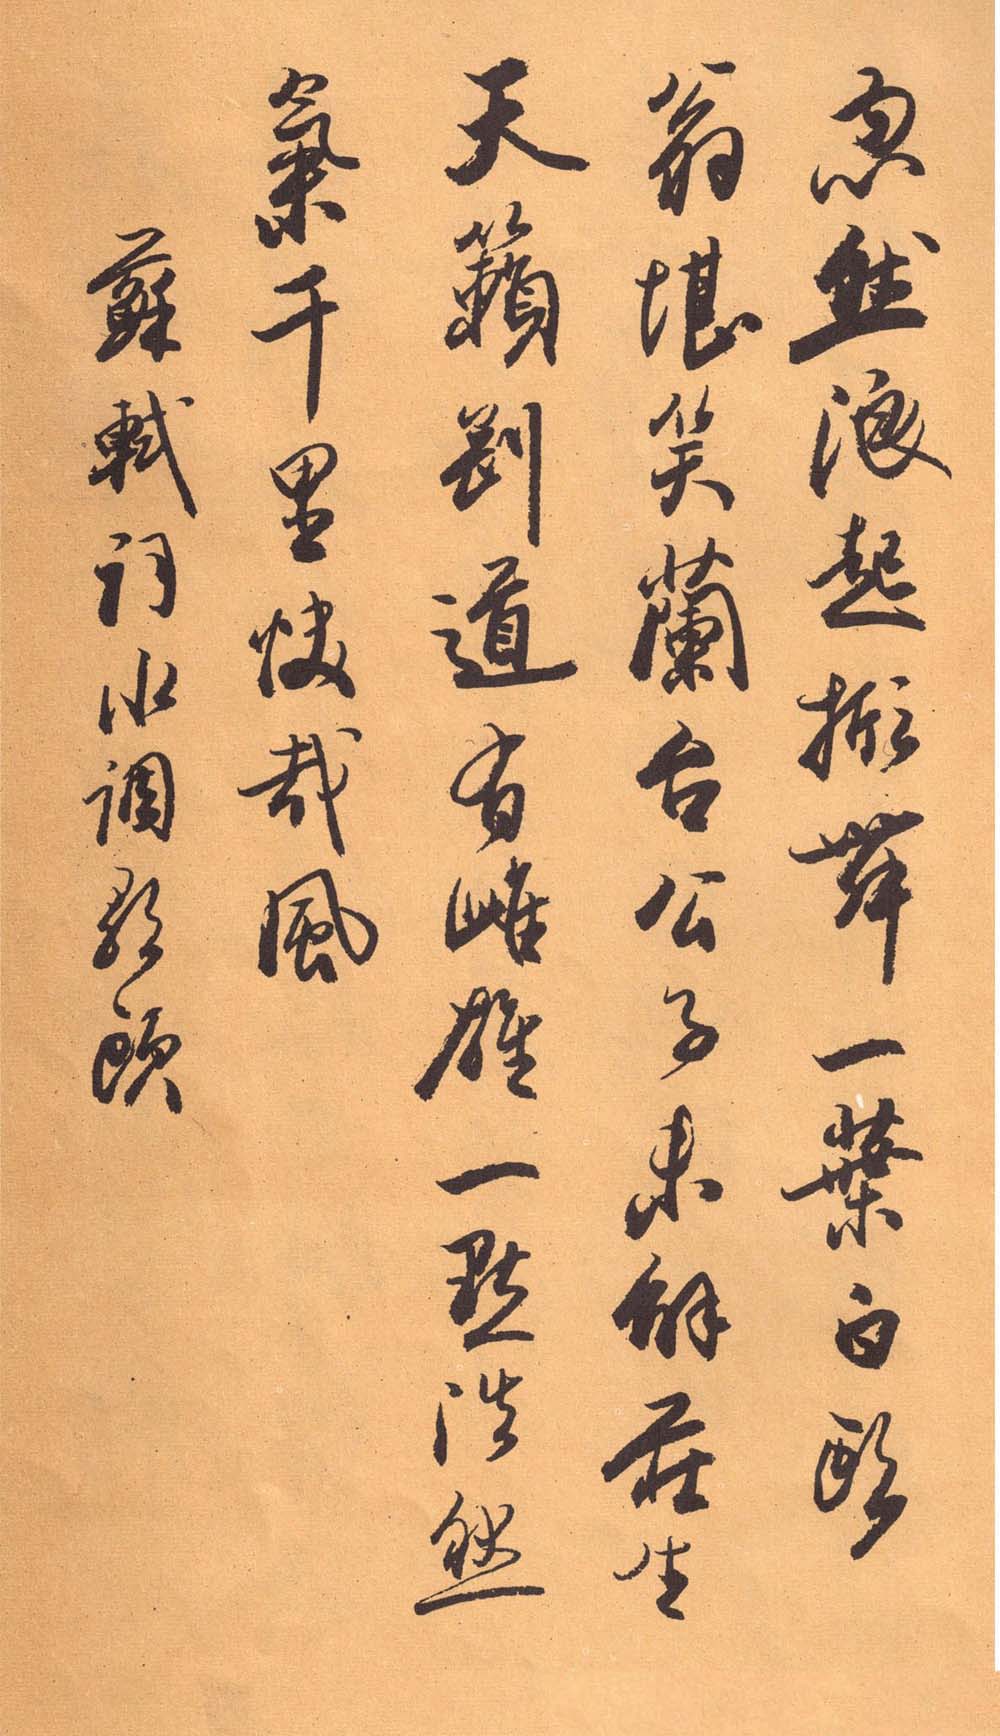 忽然浪起掀舞一葉白頭
翁堪笑蘭台公子未解莊生
天籟剛道有雌雄一點浩然
氣千里快哉風
蘇軾詞水調歌頭